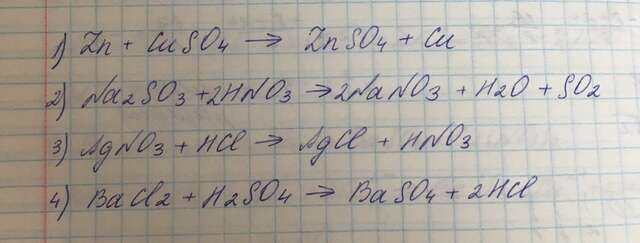 1) Zn + CuSO4 → ZnSO4 + Cu
2) Na2SO3 + 2HNO3 → 2NaNO3 + H2O + SO2
3) AgNO3 + HCl → AgCl + HNO3
4) BaCl2 + H2SO4 → BaSO4 + 2HCl